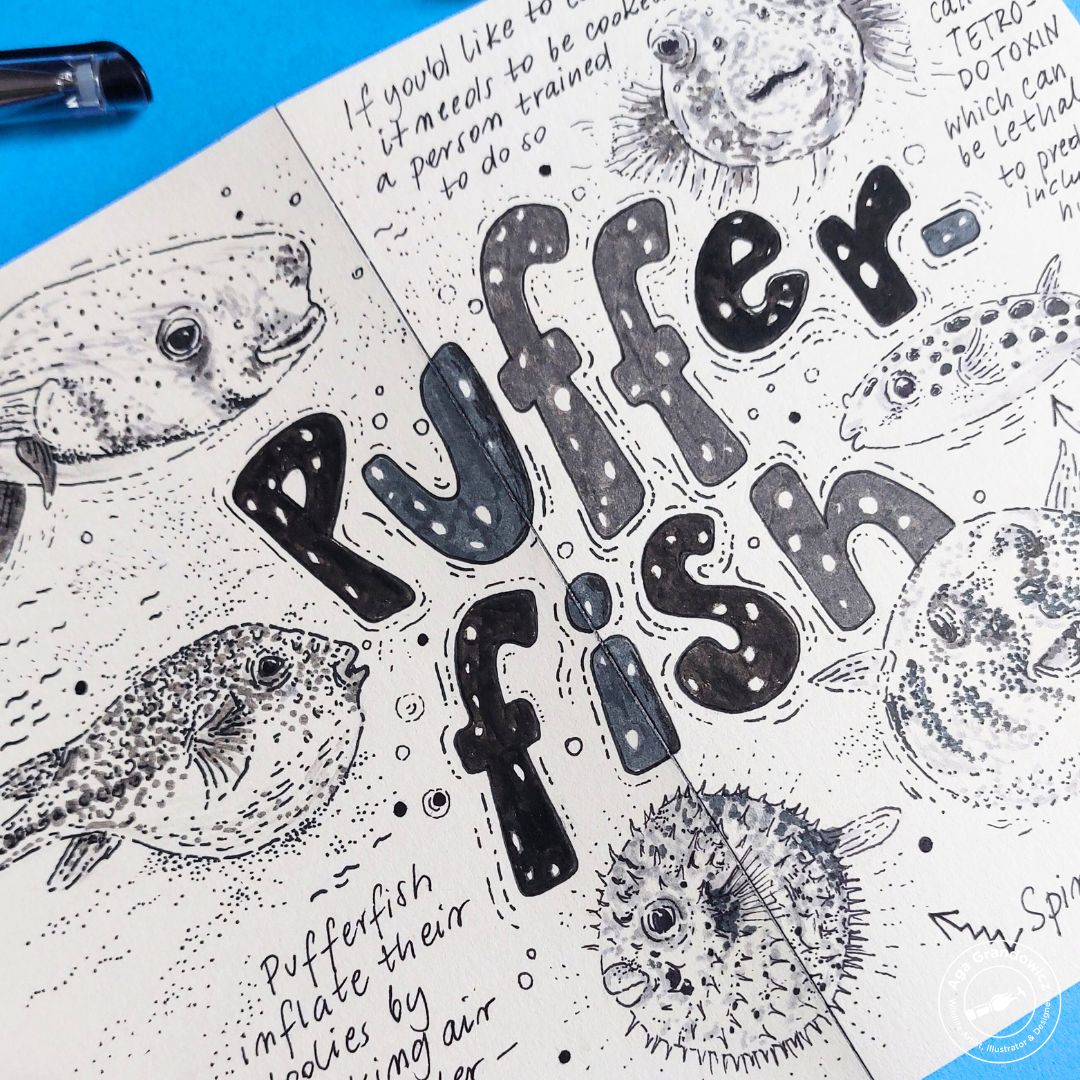 If you'd like to
it needs to be cooked
a person trained
to do so
can
TETRO-
DOTOXIN
which can
be lethal
to
Puffer-
fish
Pufferfish
inflate their
bodies by
air
Aga Grandowicz
Illustrator & Designer